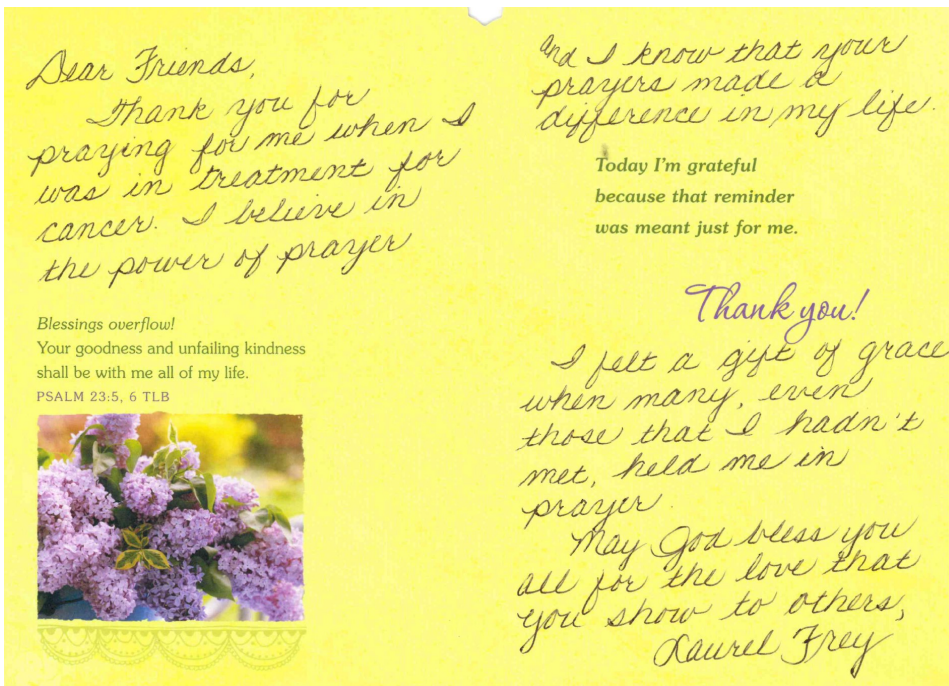 Dear Friends,
Thank you for
praying for me when I
was in treatment for
cancer. I believe in
the power of prayer
Blessings overflow!
Your goodness and unfailing kindness
shall be with me all of my life.
PSALM 23:5, 6 TLB
and I know that your
prayers made a
difference in my life.
Today I'm grateful
because that reminder
was meant just for me.
Thank you!
I felt a gift of grace
when many, even
those that I hadn't
met, held me in
prayer
May God bless you
all for the love that
you show to others,
Laurel Frey